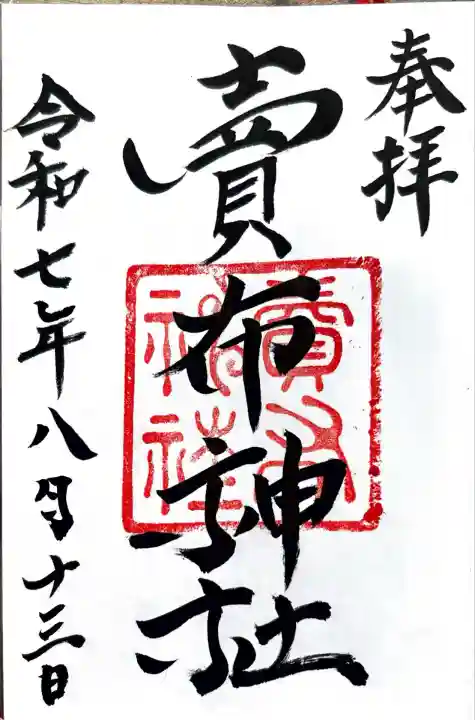 奉拝
賣布神社
賣布神社
令和七年八月十三日